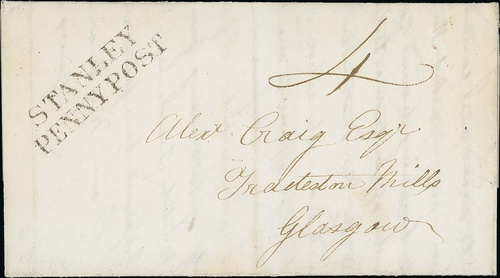 STANLEY
PENNY POST
4
Alexr Craig Esqr
Tradeston Mills
Glasgow